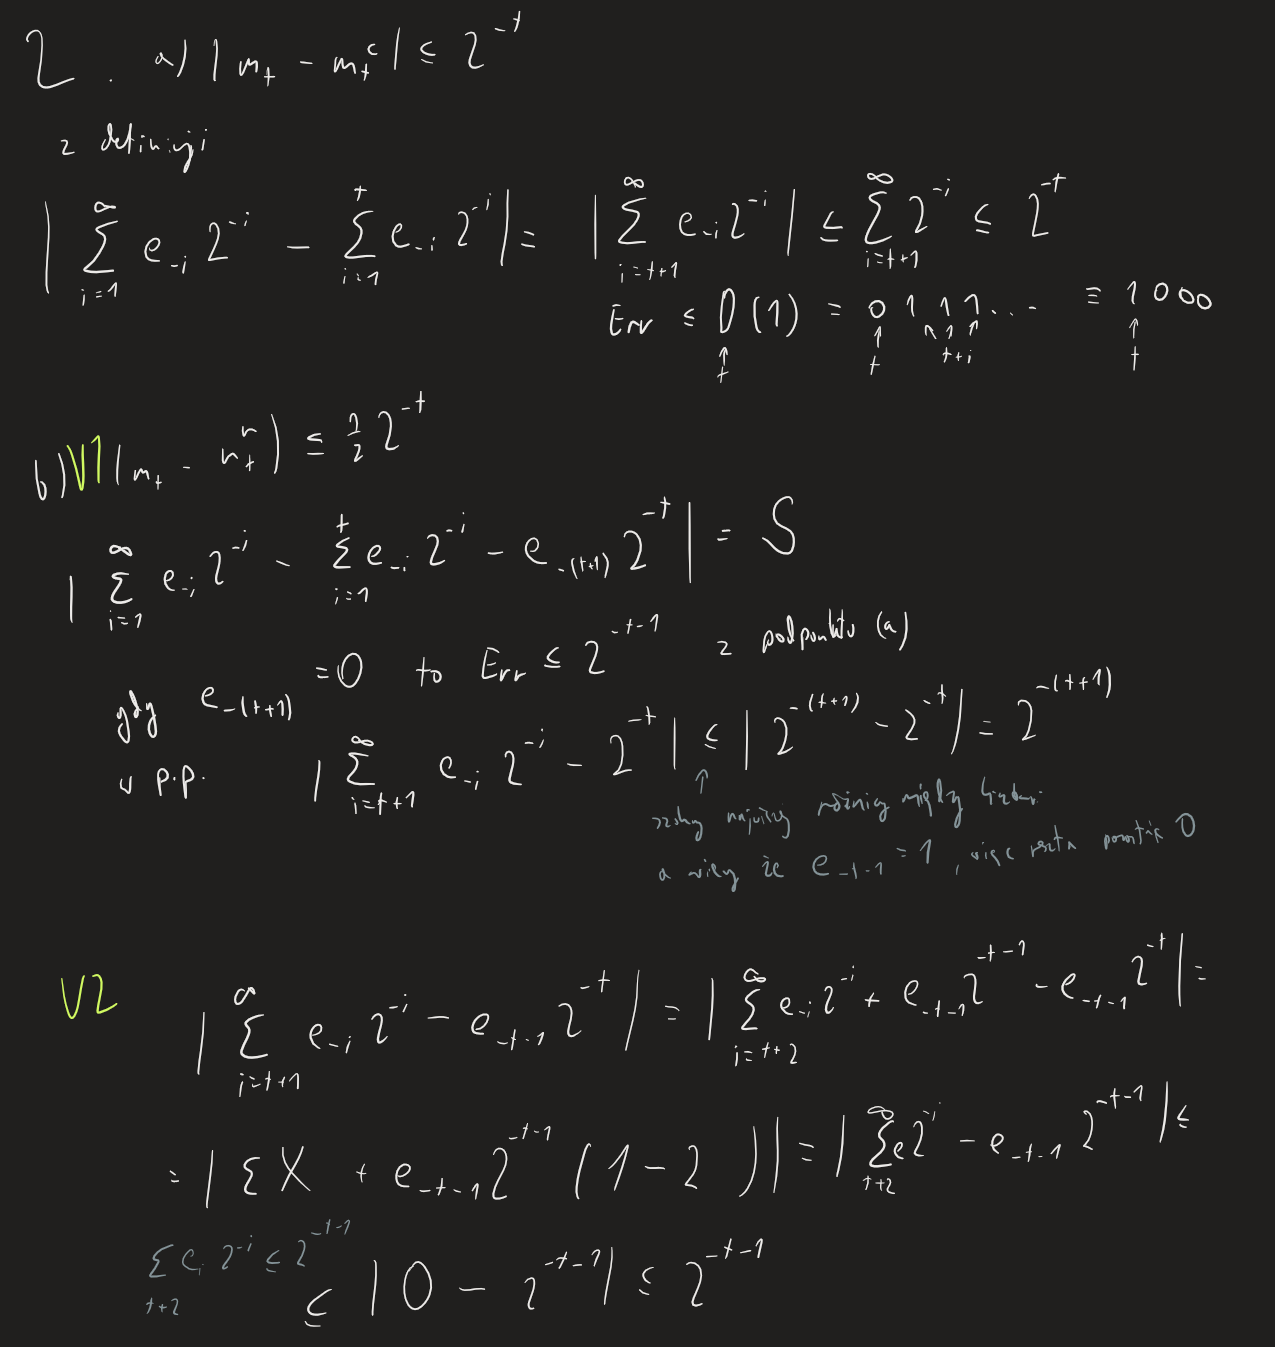 2. a) | m_t - m_t^c | ≤ 2^{-t}
z definicji
| ∑_{i=1}^{∞} e_{-i} 2^{-i} - ∑_{i=1}^{t} e_{-i} 2^{-i} | = | ∑_{i=t+1}^{∞} e_{-i} 2^{-i} | ≤ ∑_{i=t+1}^{∞} 2^{-i} ≤ 2^{-t}
Err ≤ 0 (1) = 0 1 1 1 ... ≡ 1 0 0 0
↑ ↑ ↖ ↑ ↗ ↑
t t t+i t
b) V1 | m_t - m_t^r | ≤ 1/2 2^{-t}
| ∑_{i=1}^{∞} e_{-i} 2^{-i} - ∑_{i=1}^{t} e_{-i} 2^{-i} - e_{-(t+1)} 2^{-t} | = S
gdy e_{-(t+1)} = 0 to Err ≤ 2^{-t-1} z podpunktu (a)
w p.p. | ∑_{i=t+1}^{∞} e_{-i} 2^{-i} - 2^{-t} | ≤ | 2^{-(t+1)} - 2^{-t} | = 2^{-(t+1)}
↑
różnicy między
a wiemy że e_{-t-1} = 1, więc reszta 0
V2 | ∑_{i=t+1}^{∞} e_{-i} 2^{-i} - e_{-t-1} 2^{-t} | = | ∑_{i=t+2}^{∞} e_{-i} 2^{-i} + e_{-t-1} 2^{-t-1} - e_{-t-1} 2^{-t} | =
= | ∑ X + e_{-t-1} 2^{-t-1} (1 - 2) | = | ∑_{t+2}^{∞} e 2^{-i} - e_{-t-1} 2^{-t-1} | ≤
∑_{t+2} e_i 2^{-i} ≤ 2^{-t-1}
≤ | 0 - 2^{-t-1} | ≤ 2^{-t-1}